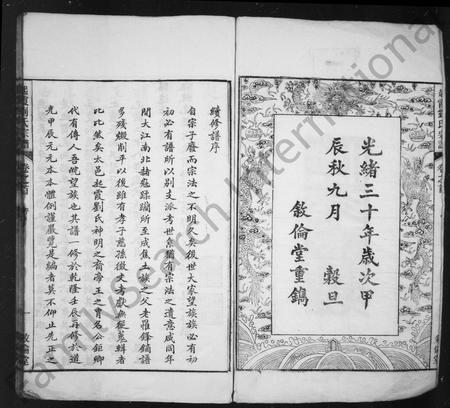 光緒三十年歲次甲
辰秋九月　穀旦
敘倫堂重鐫
續修譜序
自宗子廢而宗法之不明久矣後世大家望族族必有初
初必有譜所以別支派考世系猶有宗法之遺意咸同年
間大江南北赭寇蹂躪所至成焦土族之父老罹鋒鏑譜
多殘燬削平以後雖有孝子慈孫徵文考獻無輯者
比比然矣太邑起霞劉氏神明之裔帝王之胄名公鉅卿
代有傳人吾皖望族也其譜一修於乾隆壬辰再修於道
光甲辰元元本本體例謹嚴覽是編者莫不仰止先正之
FamilySearch International